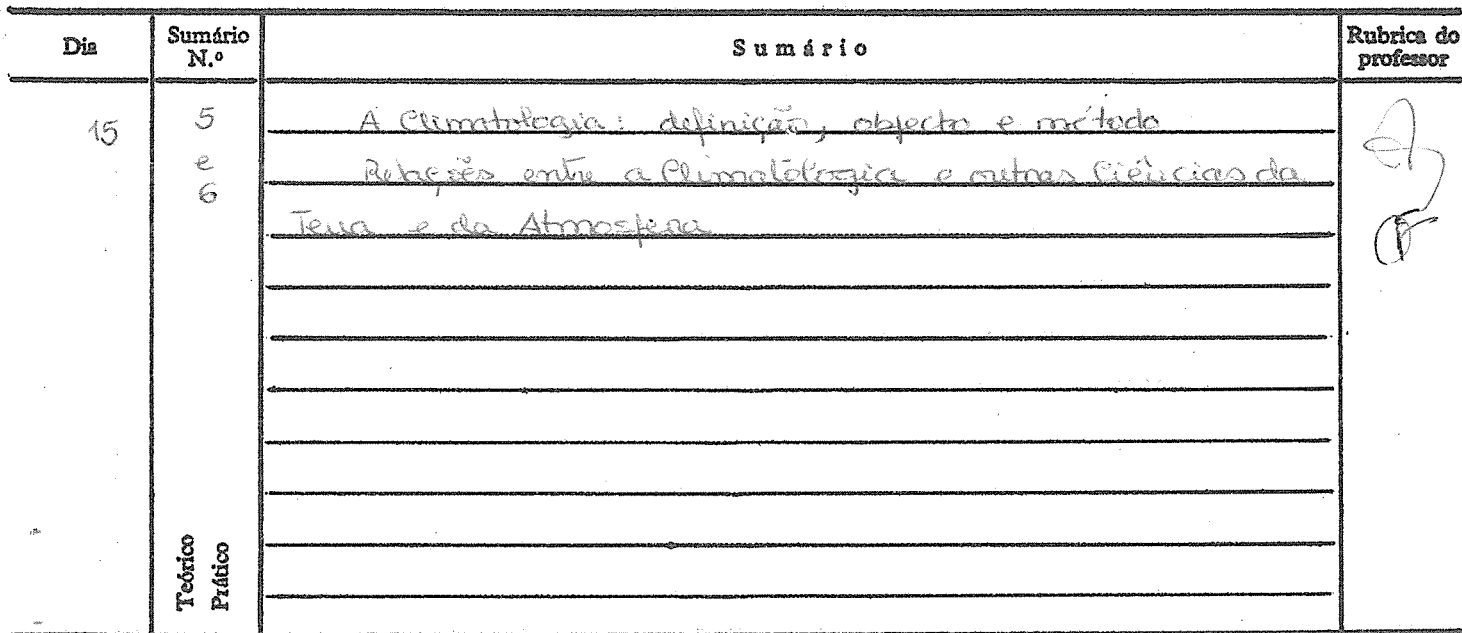 Dia
Sumário N.º
Sumário
Rubrica do professor
15
5
e
6
A Climatologia: definição, objecto e método
Relações entre a Climatologia e outras Ciências da
Terra e da Atmosfera
Teórico
Prático